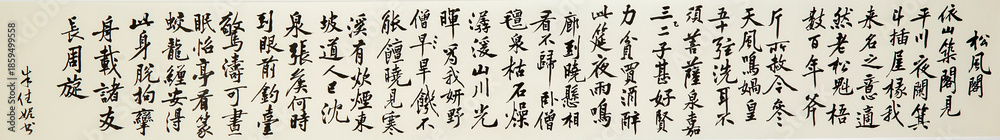 松風閣
依山築閣見
平川夜闌箕
斗插屋椽我
来名之意適
然老松魁梧
數百年斧
斤所赦今參
天風鳴媧皇
五十弦洗耳不
須菩薩泉嘉
三二子甚好賢
力貧買酒醉
此筵夜雨鳴
廊到曉懸相
看不歸卧僧
氊泉枯石燥
潺湲山川光
暉為我妍野
僧早旱饑不
能饘曉見寒
溪有炊煙東
坡道人已沈
泉張矦何時
到眼前釣臺
驚濤可晝
眠怡亭看篆
蛟龍纏安得
此身脱拘攣
舟載諸友
長周旋
朱佳妮书
Adobe Stock | #1859499558